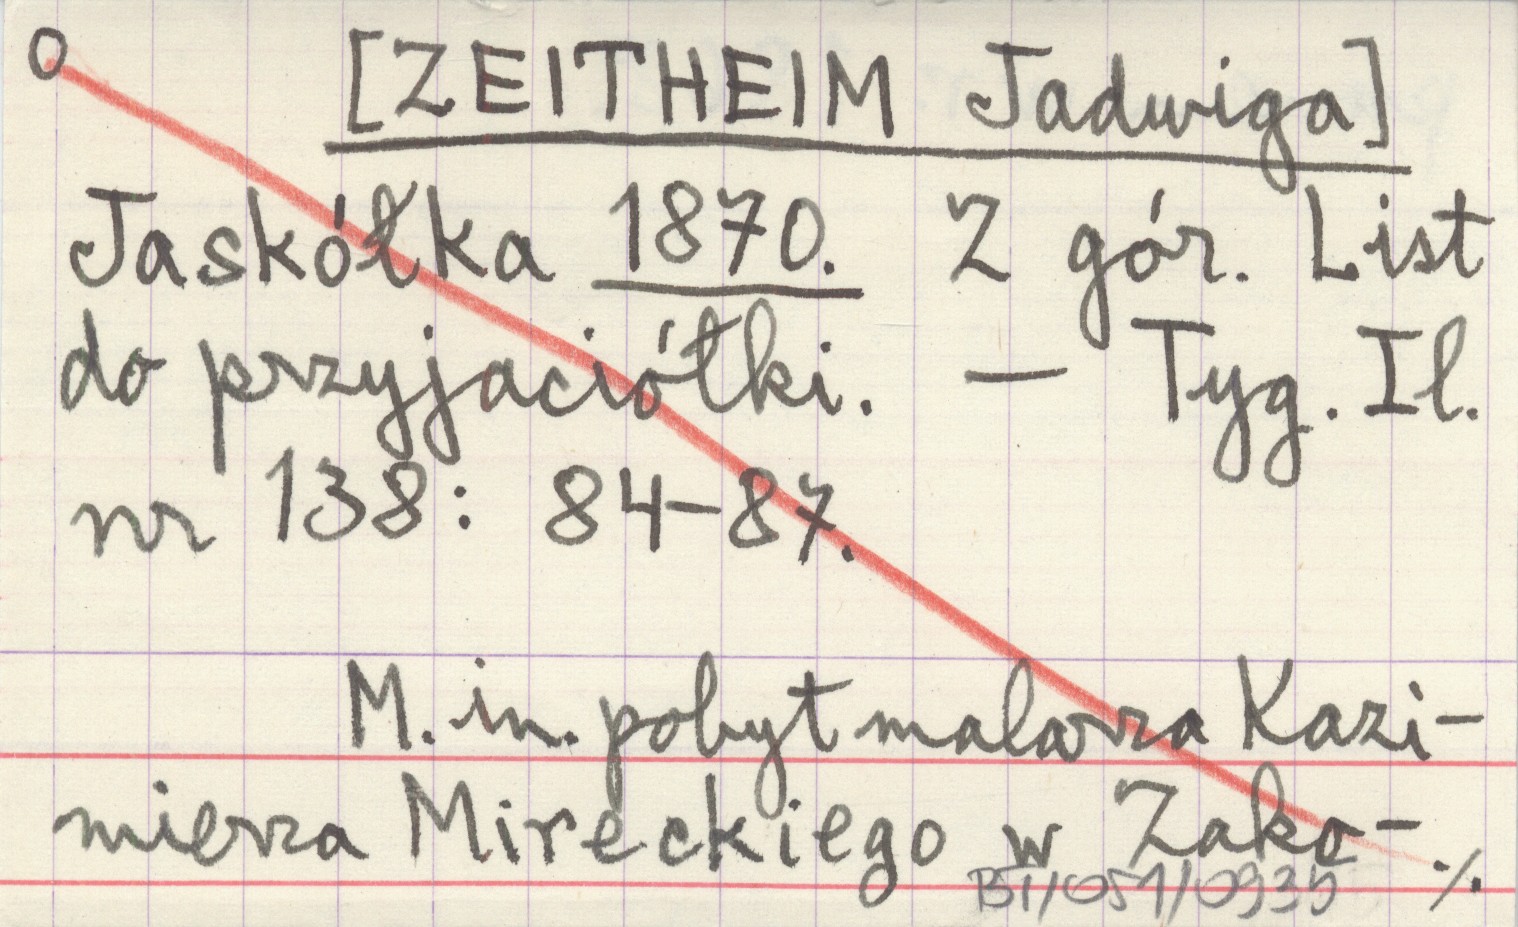 O
[ZEITHEIM Jadwiga]
Jaskółka 1870. Z gór. List
do przyjaciółki. — Tyg. Il.
nr 138: 84–87.
M. in. pobyt malarza Kazi-
mierza Mireckiego w Zako-
BT/051/0935 ./.